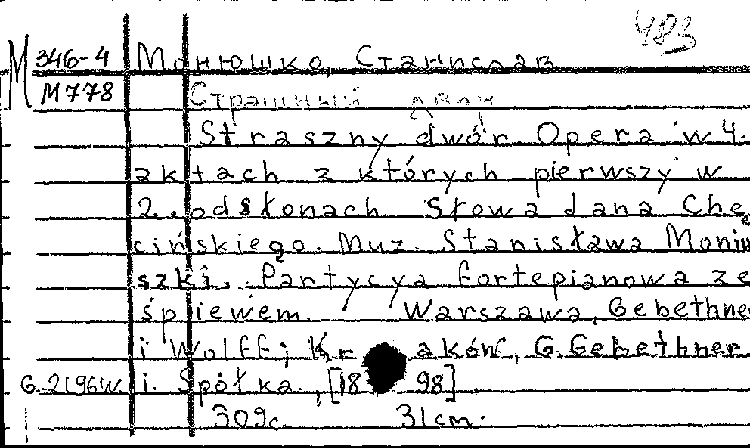 483
М 346-4 Монюшко, Станислав
М778 Страшный двор
Straszny dwór Opera w 4.
aktach z których pierwszy w
2. odsłonach Słowa Jana Chę
cińskiego. Muz. Stanisława Moniu
szki. Partycya fortepianowa ze
śpiewem. Warszawa, Gebethner
i Wolff; Kraków, G. Gebethner
i Spółka, [1898]
309c. 31cm.